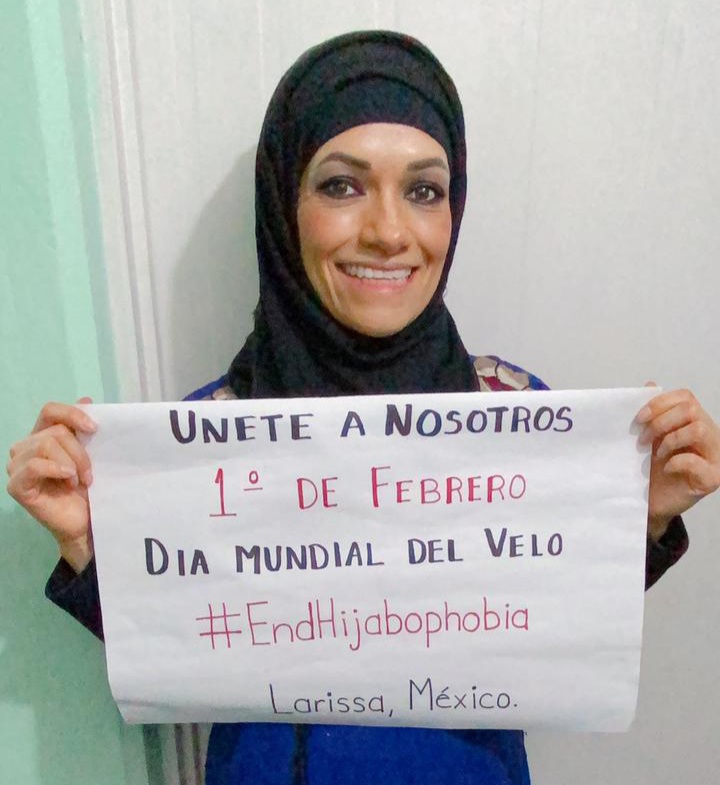 UNETE A NOSOTROS
1º DE FEBRERO
DIA MUNDIAL DEL VELO
#EndHijabophobia
Larissa, México.